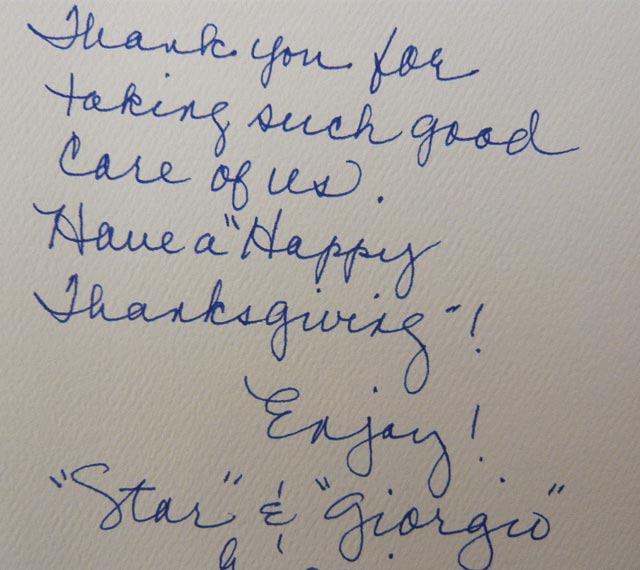 Thank you for
taking such good
Care of us.
Have a "Happy
Thanksgiving"!
Enjoy!
"Star" & "Giorgio"